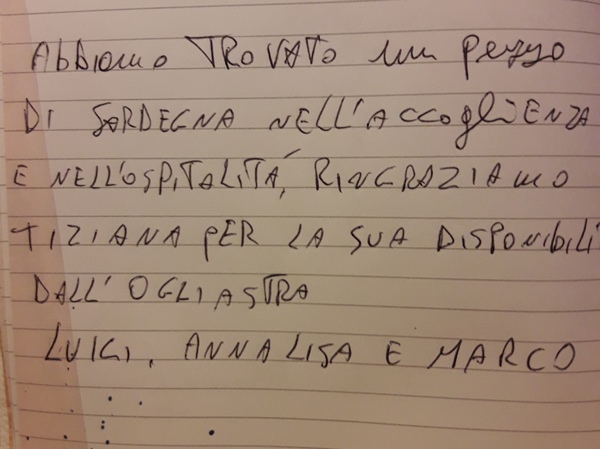 Abbiamo TROVATO un pezzo
DI SARDEGNA NELL'ACCOGLIENZA
E NELL'OSPITALITÁ, RINGRAZIAMO
TIZIANA PER LA SUA DISPONIBILI
DALL'OGLIASTRA
LUIGI, ANNALISA E MARCO